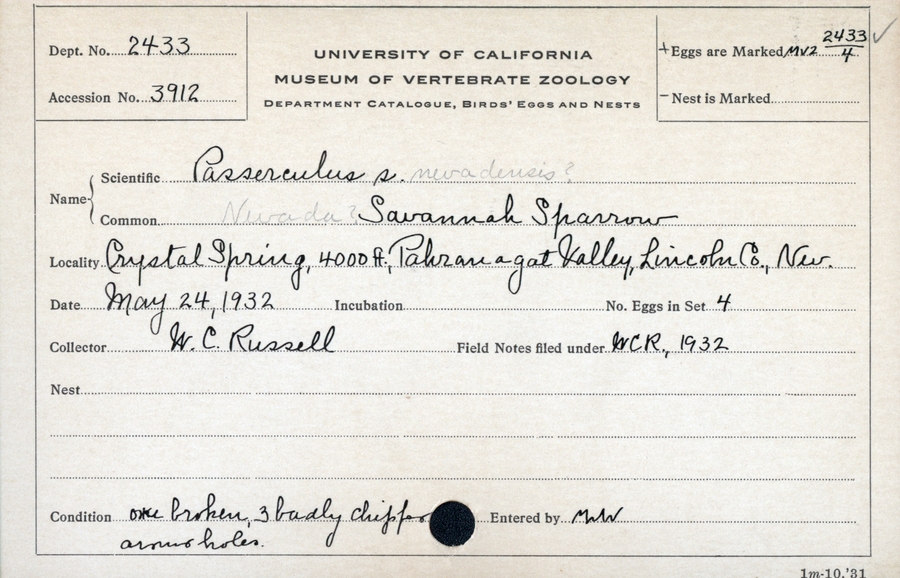 Dept. No. 2433
Accession No. 3912
UNIVERSITY OF CALIFORNIA
MUSEUM OF VERTEBRATE ZOOLOGY
DEPARTMENT CATALOGUE, BIRDS' EGGS AND NESTS
+Eggs are Marked MVZ 2433/4 ✓
-Nest is Marked
Name
Scientific Passerculus s. nevadensis?
Common Nevada? Savannah Sparrow
Locality Crystal Spring, 4000 ft., Pahranagat Valley, Lincoln Co., Nev.
Date May 24, 1932 Incubation No. Eggs in Set 4
Collector W. C. Russell Field Notes filed under WCR., 1932
Nest
Condition one broken, 3 badly chipped Entered by
around holes.
1m-10,'31